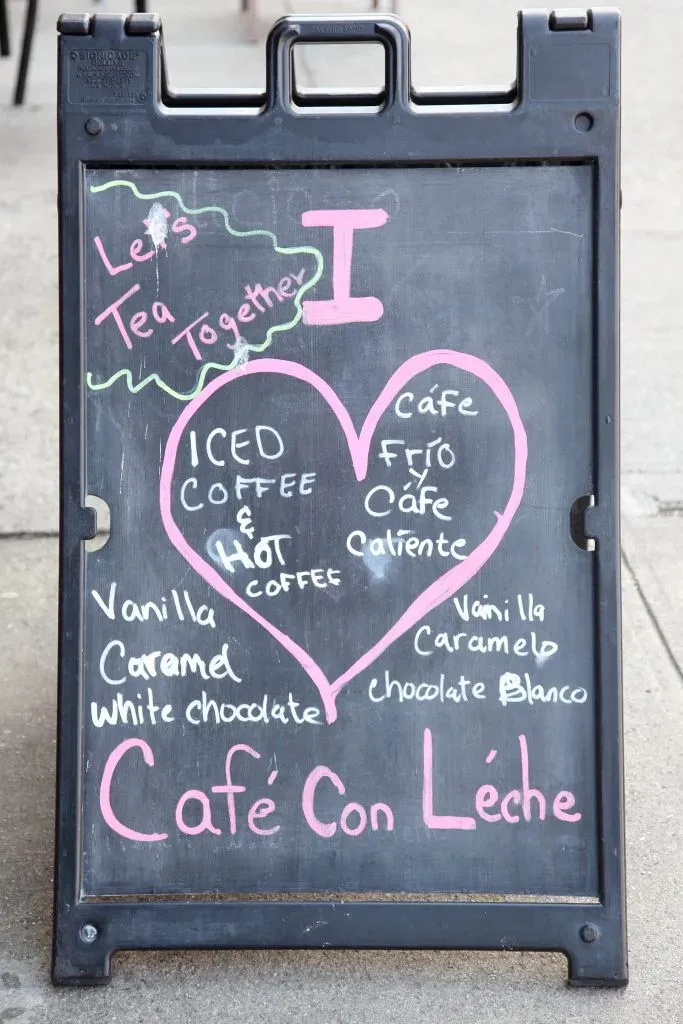 SIGNICADE
DELUXE
Let's
Tea
Together
I
ICED
COFFEE
&
HOT
COFFEE
cáfe
Frío
y
Cáfe
caliente
Vanilla
Caramel
white chocolate
Vainilla
Caramelo
chocolate Blanco
Café Con Léche